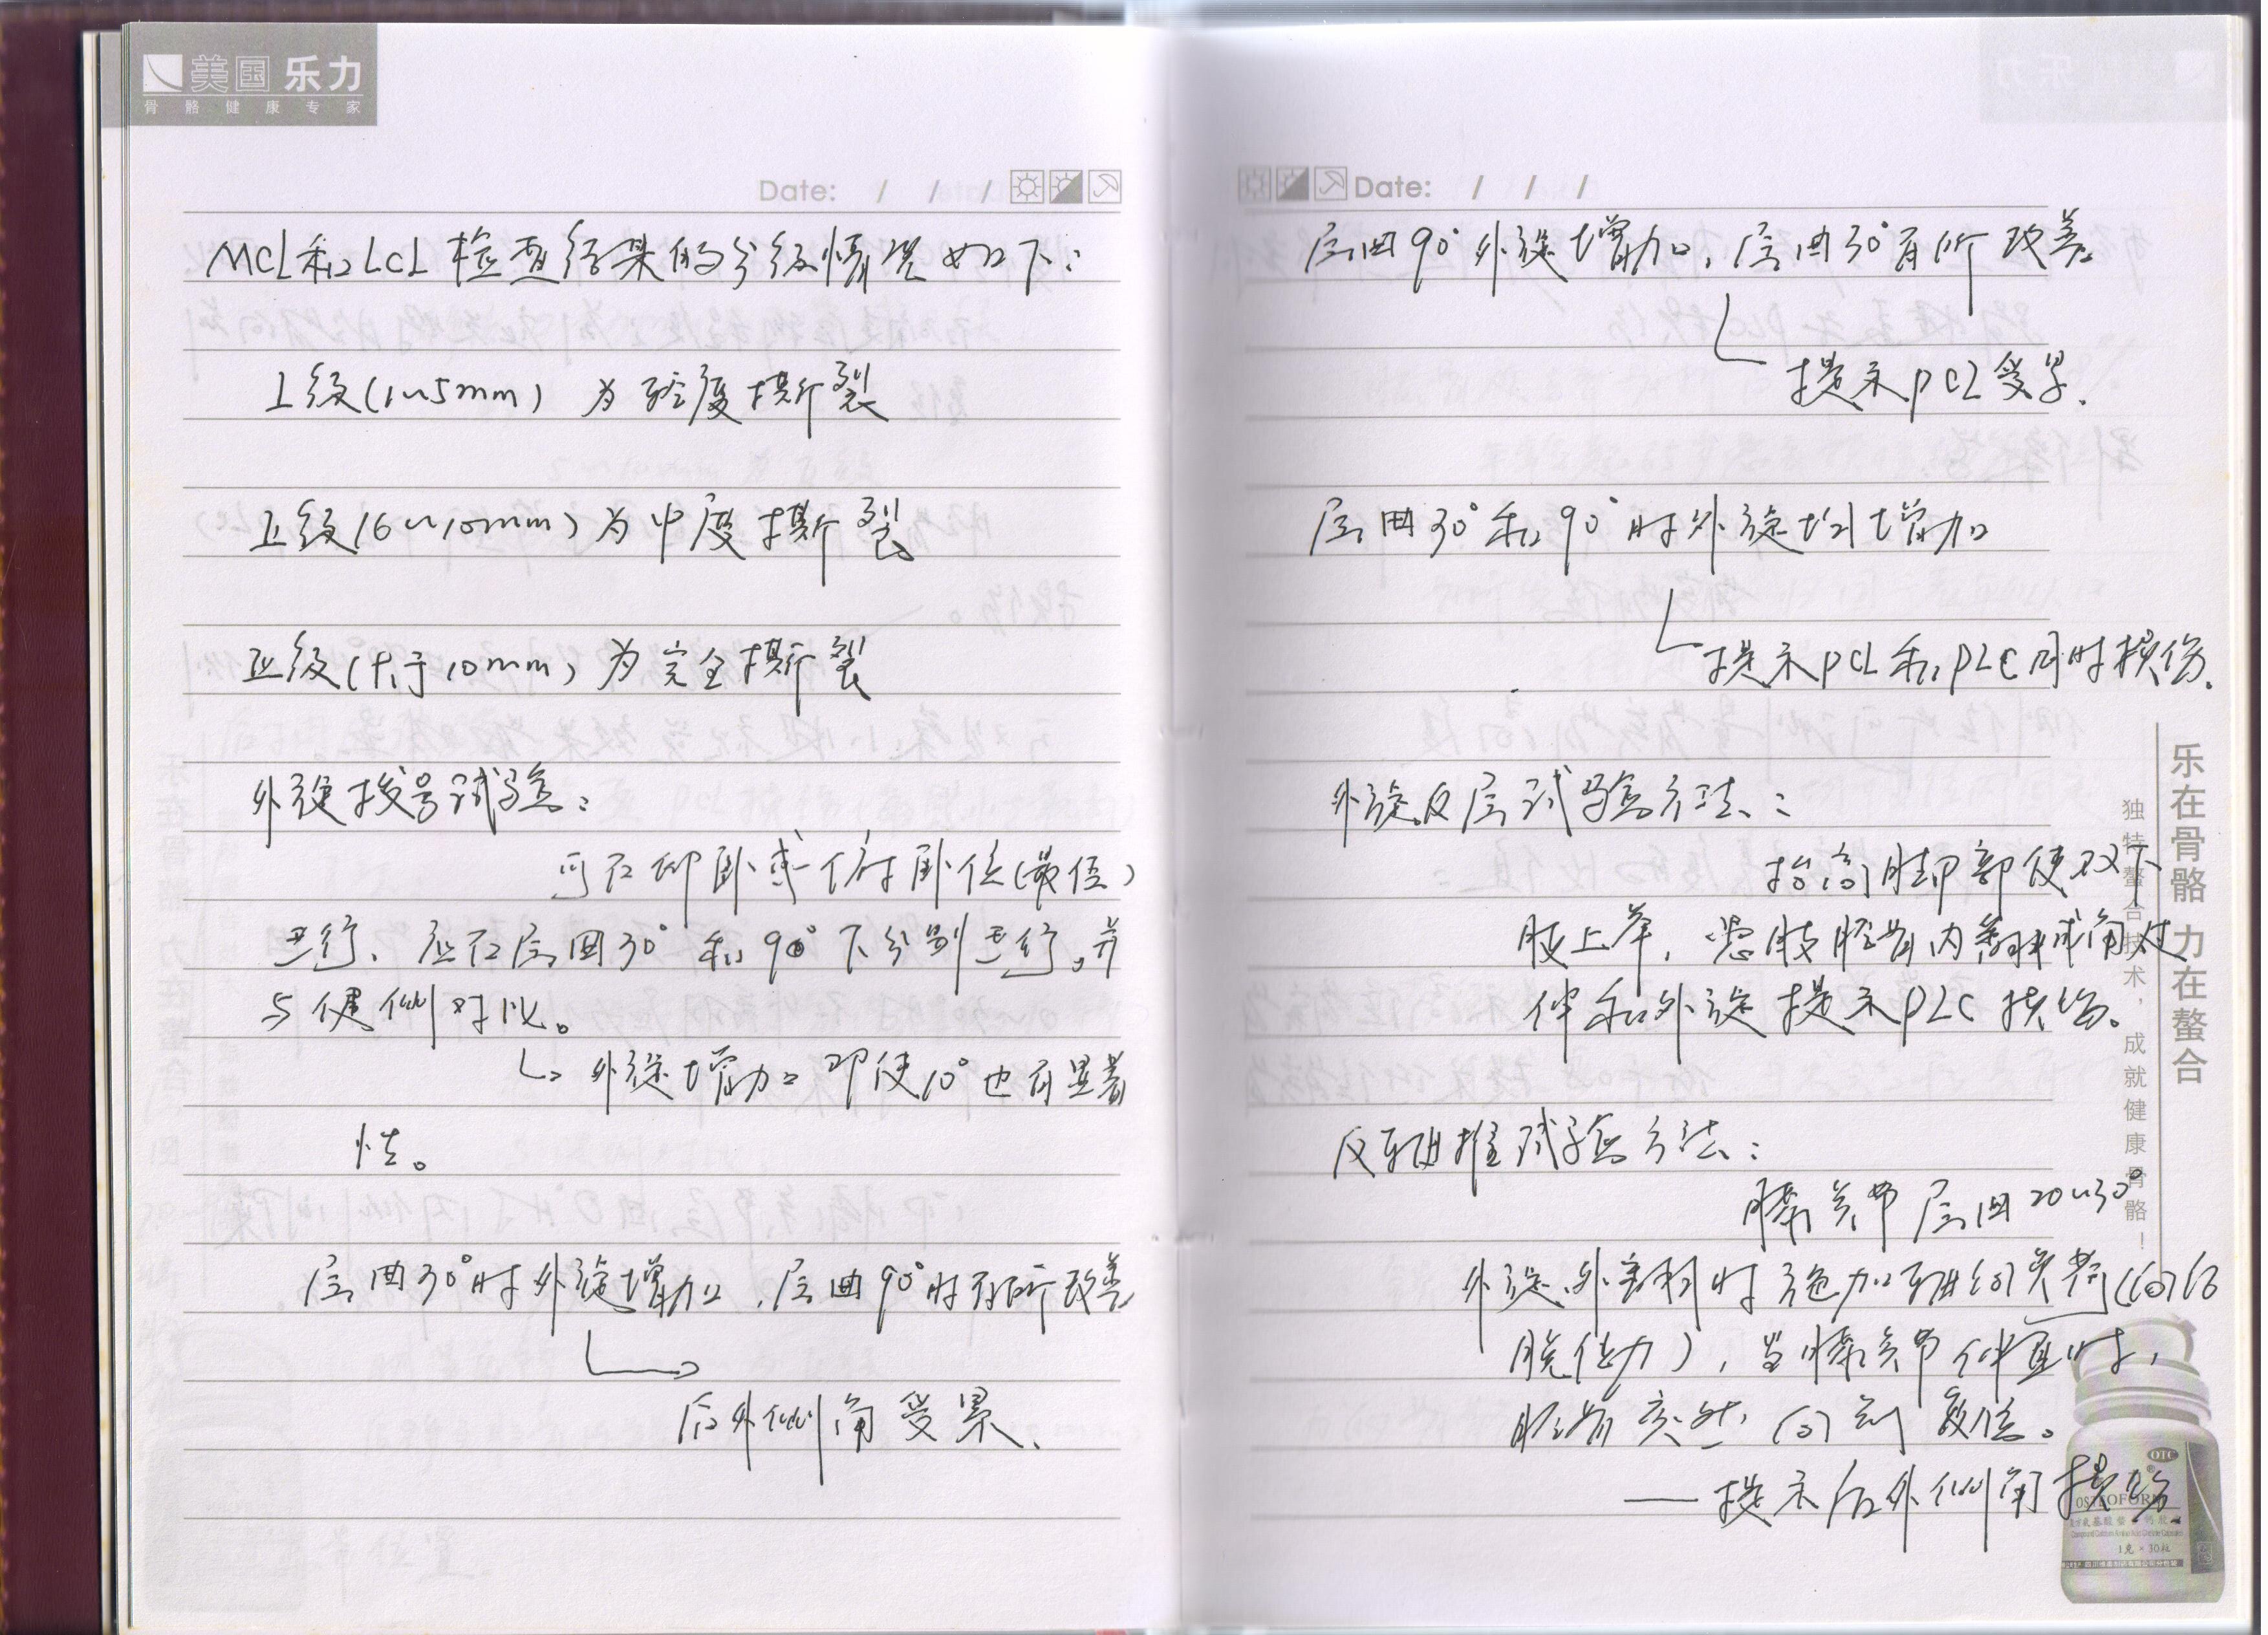 美国 乐力
骨骼健康专家
Date: / / /
MCL和LCL检查结果的分级情况如下:
I级(1~5mm) 为轻度撕裂
II级(6~10mm)为中度撕裂
III级(大于10mm)为完全撕裂
外旋拨号试验:
可在仰卧或俯卧位(最佳)
进行、应在屈曲30°和90°下分别进行,并
与健侧对比。
外旋增加即使10°也有显著
性。
屈曲30°时外旋增加,屈曲90°时有所改善
后外侧角受累、
乐力
Date: / / /
屈曲90°外旋增加,屈曲30°有所改善。
提示PCL受累.
屈曲30°和90°时外旋均增加
提示PCL和PLC同时损伤.
外旋反屈试验方法:
抬高脚部使双下
肢上举,患肢胫骨内翻成角过
伸和外旋提示PLC损伤。
反轴推试验方法:
膝关节屈曲20~30°
外旋、外翻时施加轴向负荷(向后
脱位力),当膝关节伸直时,
胫骨突然向前复位。
——提示后外侧角损伤
乐在骨骼 力在螯合
独特螯合技术,成就健康骨骼!
OTC
OSTEOFORM
1克×30粒